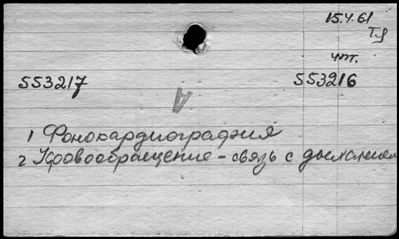 15.4.61
чт.
553217 553216
1 Фонокардиография
2 Кровообращение - связь с дыханием